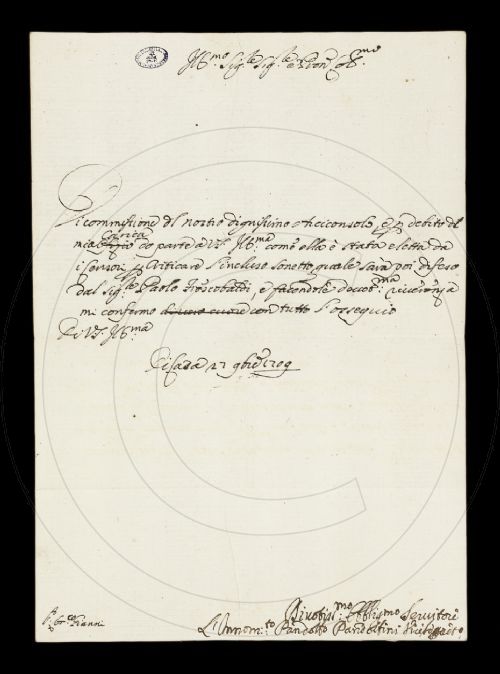 Ill.mo Sig.re Sig.re e Pron. Ob.mo
Di commissione del nostro dignissimo Arciconsolo, e p debito del
mia Carica do parte a VS. Ill.ma come ella è stato eletto da
i Censori p criticare l'incluso Sonetto, quale sarà poi difeso
dal Sig.re Paolo Frescobaldi, e facendole devot.ma riverenza
mi confermo di vero cuore con tutto l'ossequio
Di VS. Ill.ma
Di Casa 27 9bre 1709
Divotiss.mo Obblig.mo Servitore
L'Innom.to Pandolfo Pandolfini Vicesegret.o
S.r Gianni